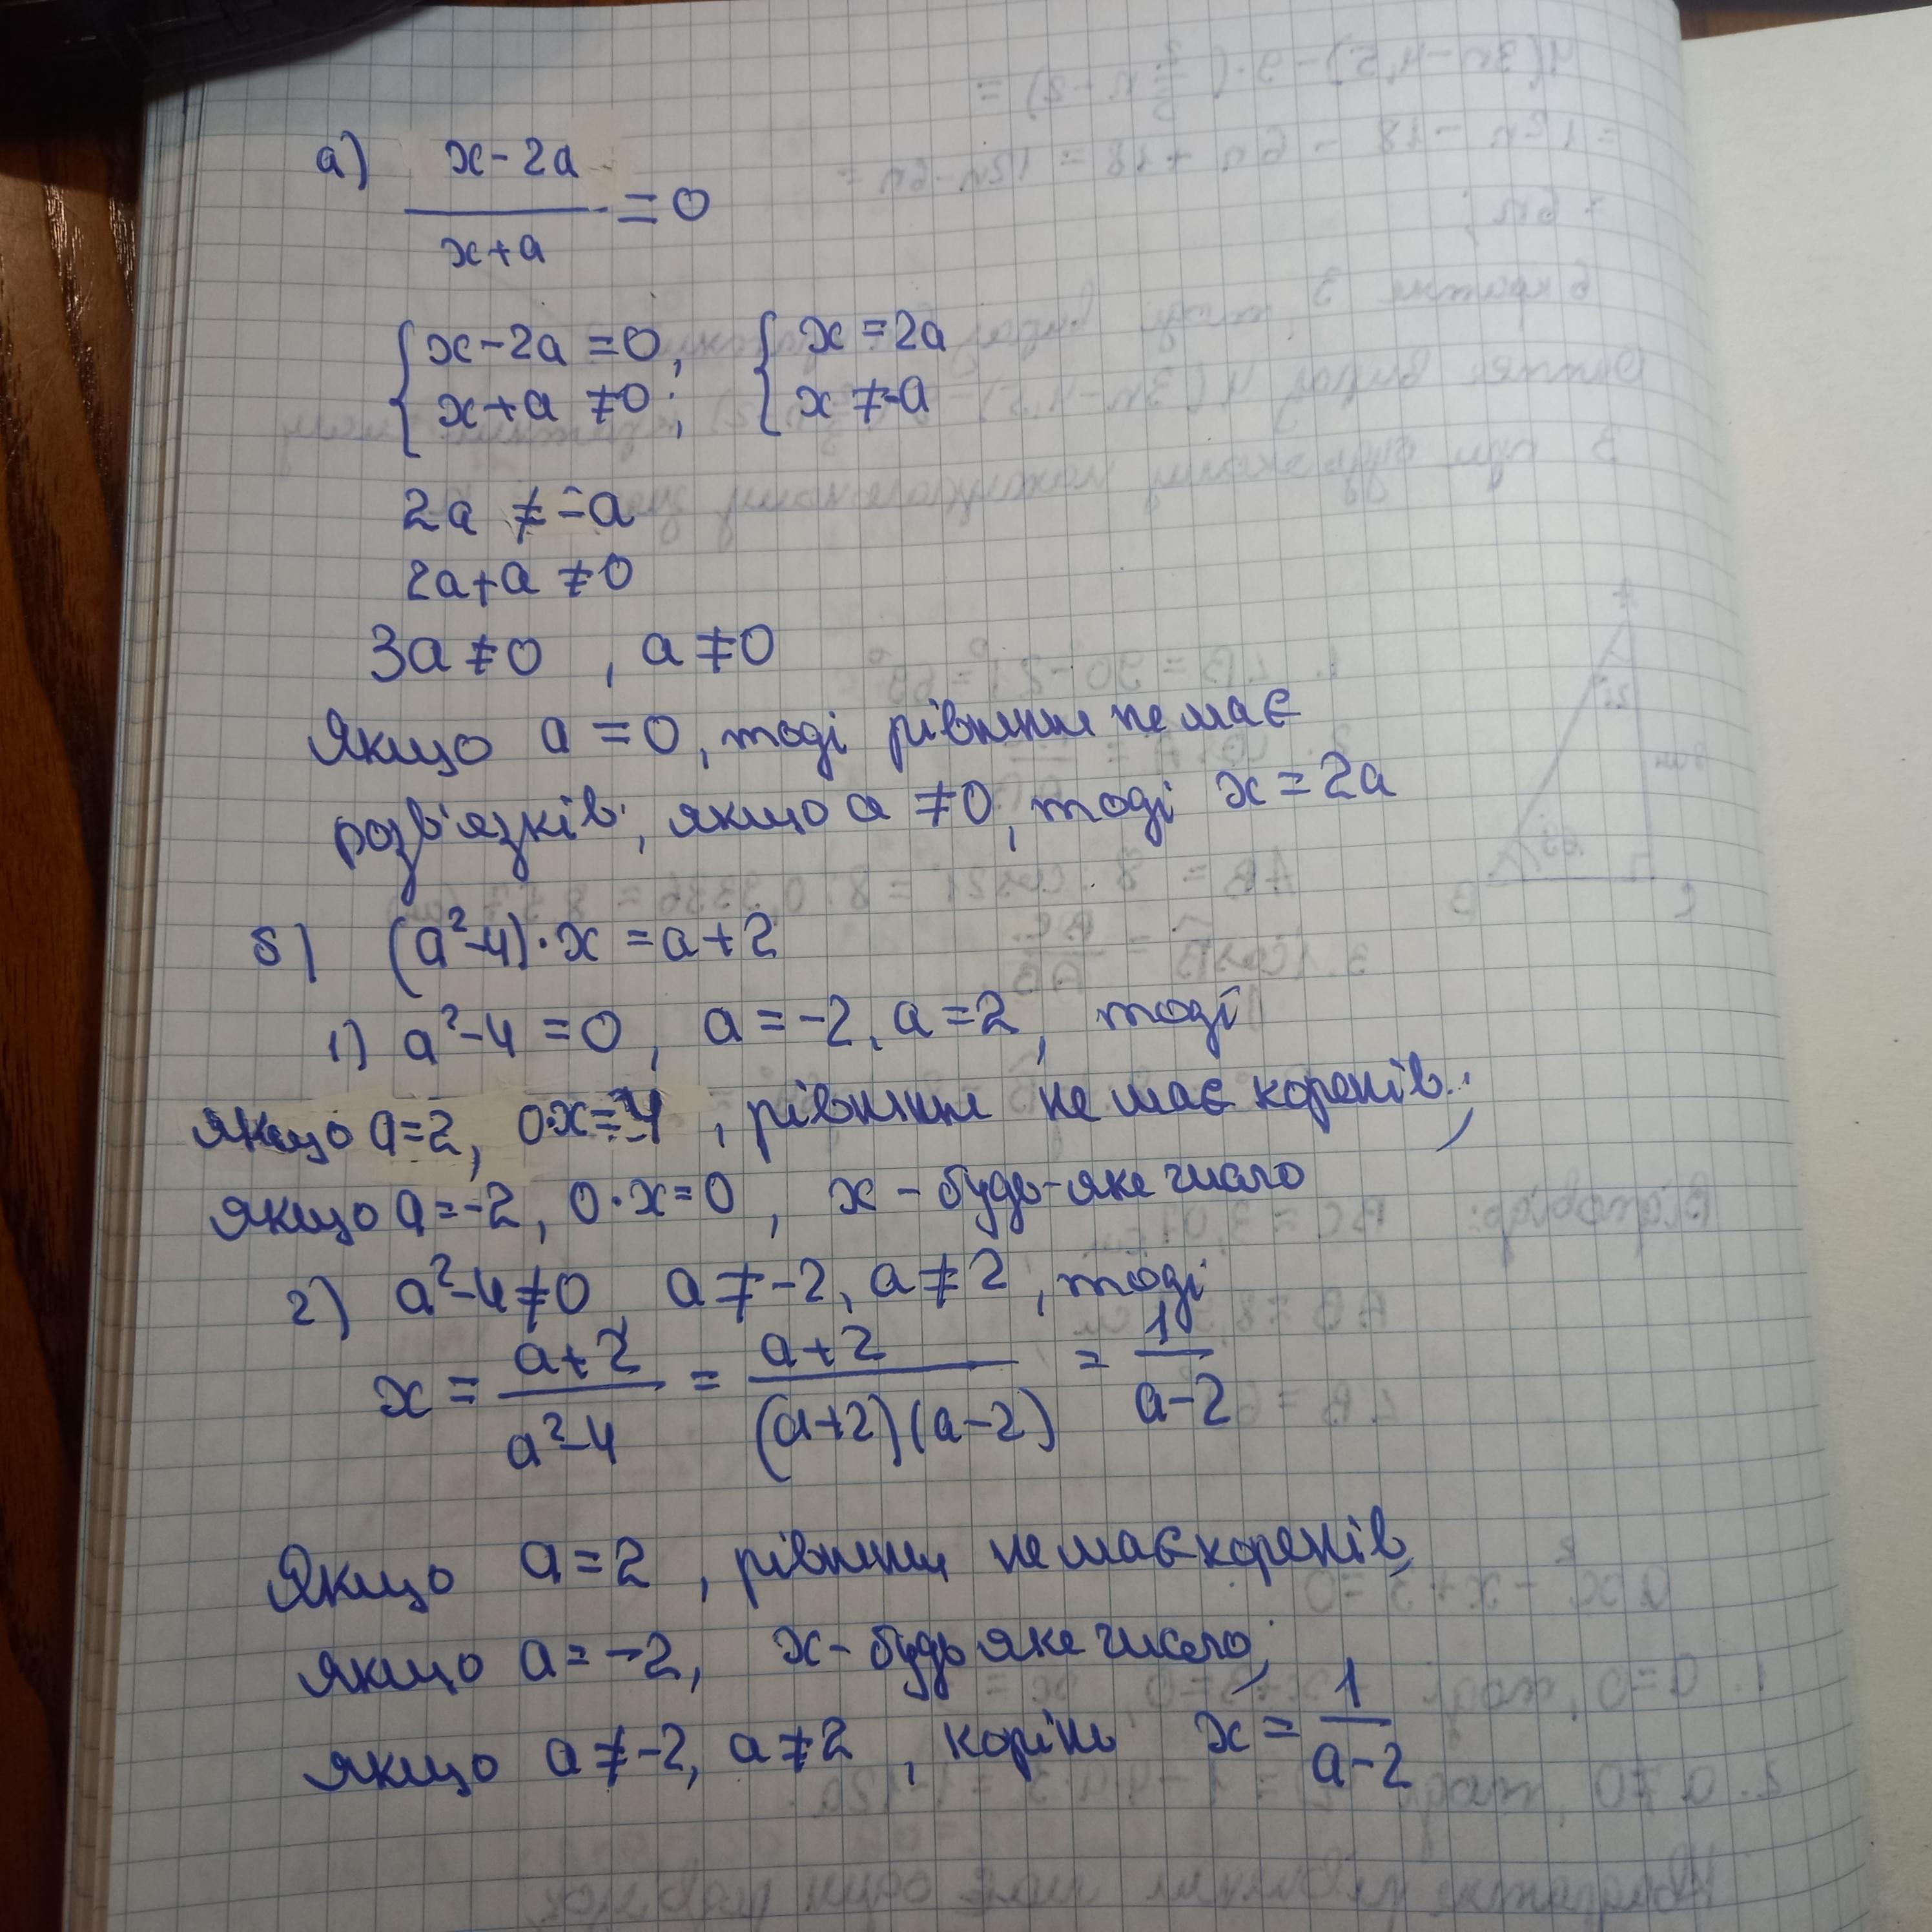 а) x-2a
/ x+a = 0
{ x-2a=0, { x=2a
{ x+a≠0; { x≠-a
2a ≠ -a
2a+a ≠0
3a≠0 , a≠0
Якщо a=0, тоді рівняння не має
розв'язків; якщо a≠0, тоді x=2a
б) (a²-4)·x=a+2
1) a²-4=0, a=-2, a=2, тоді
якщо a=2, 0·x=4, рівняння не має коренів;
якщо a=-2, 0·x=0, x - будь-яке число
2) a²-4≠0 a≠-2, a≠2, тоді
x = (a+2)/(a²-4) = (a+2)/((a+2)(a-2)) = 1/(a-2)
Якщо a=2, рівняння не має коренів,
якщо a=-2, x - будь яке число,
якщо a≠-2, a≠2, корінь x = 1/(a-2)